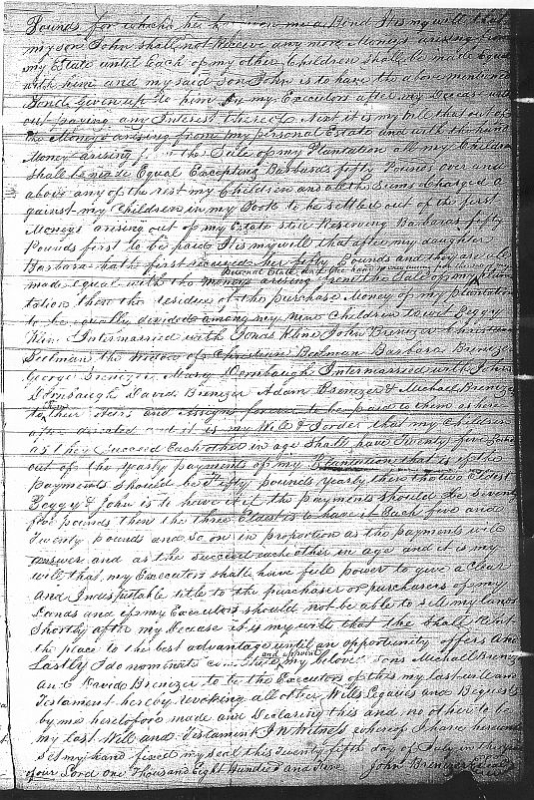 Pounds for which he has given me a Bond It is my will that
my son John shall not Receive any more Moneys arising from
my Estate until Each of my other Children shall be made Equal
with him and my said Son John is to have the above mentioned
Bond given up to him by my Executors after my Deceas with
out paying any Interest thereof Next it is my will that out of
the Moneys arising from my personal Estate and with the hand
Money arising the Sale of my Plantation all my Children
Shall be made Equal Excepting Barbaras fifty Pounds over and
above any of the rest my Children and all the Sums Charged a
gainst my Children in my Book to be settled out of the first
Moneys arising out of my Estate still Reserving Barbaras fifty
Pounds first to be paid It is my will that after my daughter
Barbara hath first received her fifty Pounds and they are all
personal Estate and the hand money arising from the sale
made equal with the moneys arising from the Sale of my plan
tation then the residue of the purchase Money of my plantation
to be equally divided among my nine Children to wit Peggy
Kline Intermarried with Jonas Kline John Brenizer Christiana
Beelman the Widow of Christian Beelman Barbara Brenizer
George Brenizer Mary Dornbaugh Intermarried with John
Dornbaugh David Brenizer Adam Brenizer & Michael Brenizer
to their Heirs and Assigns forever to be paid to them as here
after directed and it is my Will & order that my Children
as they succeed Each other in age Shall have Twenty five
out of the yearly payments of my Plantation that is if the
payments should be fifty pounds yearly then the two Eldest
Peggy & John is to have it if the payments should be Seventy
five pounds then the three Eldest is to have it Each five and
Twenty pounds and so on in proportion as the payments will
answer and as the succeed each other in age and it is my
will that my Executors shall have full power to give a Clear
and Indisputable title to the purchaser or purchasers of my
Lands and if my Executors should not be able to sell my land
Shortly after my Decease it is my will that the shall Rent
the place to the best advantage until an opportunity offers And
Lastly I do nominate
and appoint
my beloved Sons Michael Brenizer
and David Brenizer to be the Executors of this my last will and
Testament hereby revoking all other Wills Legacies and Bequests
by me heretofore made and Declaring this and no other to be
my last Will and Testament In Witness whereof I have hereunto
Set my hand fixed my seal this Twenty fifth day of July in the year
of our Lord One Thousand Eight Hundred and Five John Brenizer